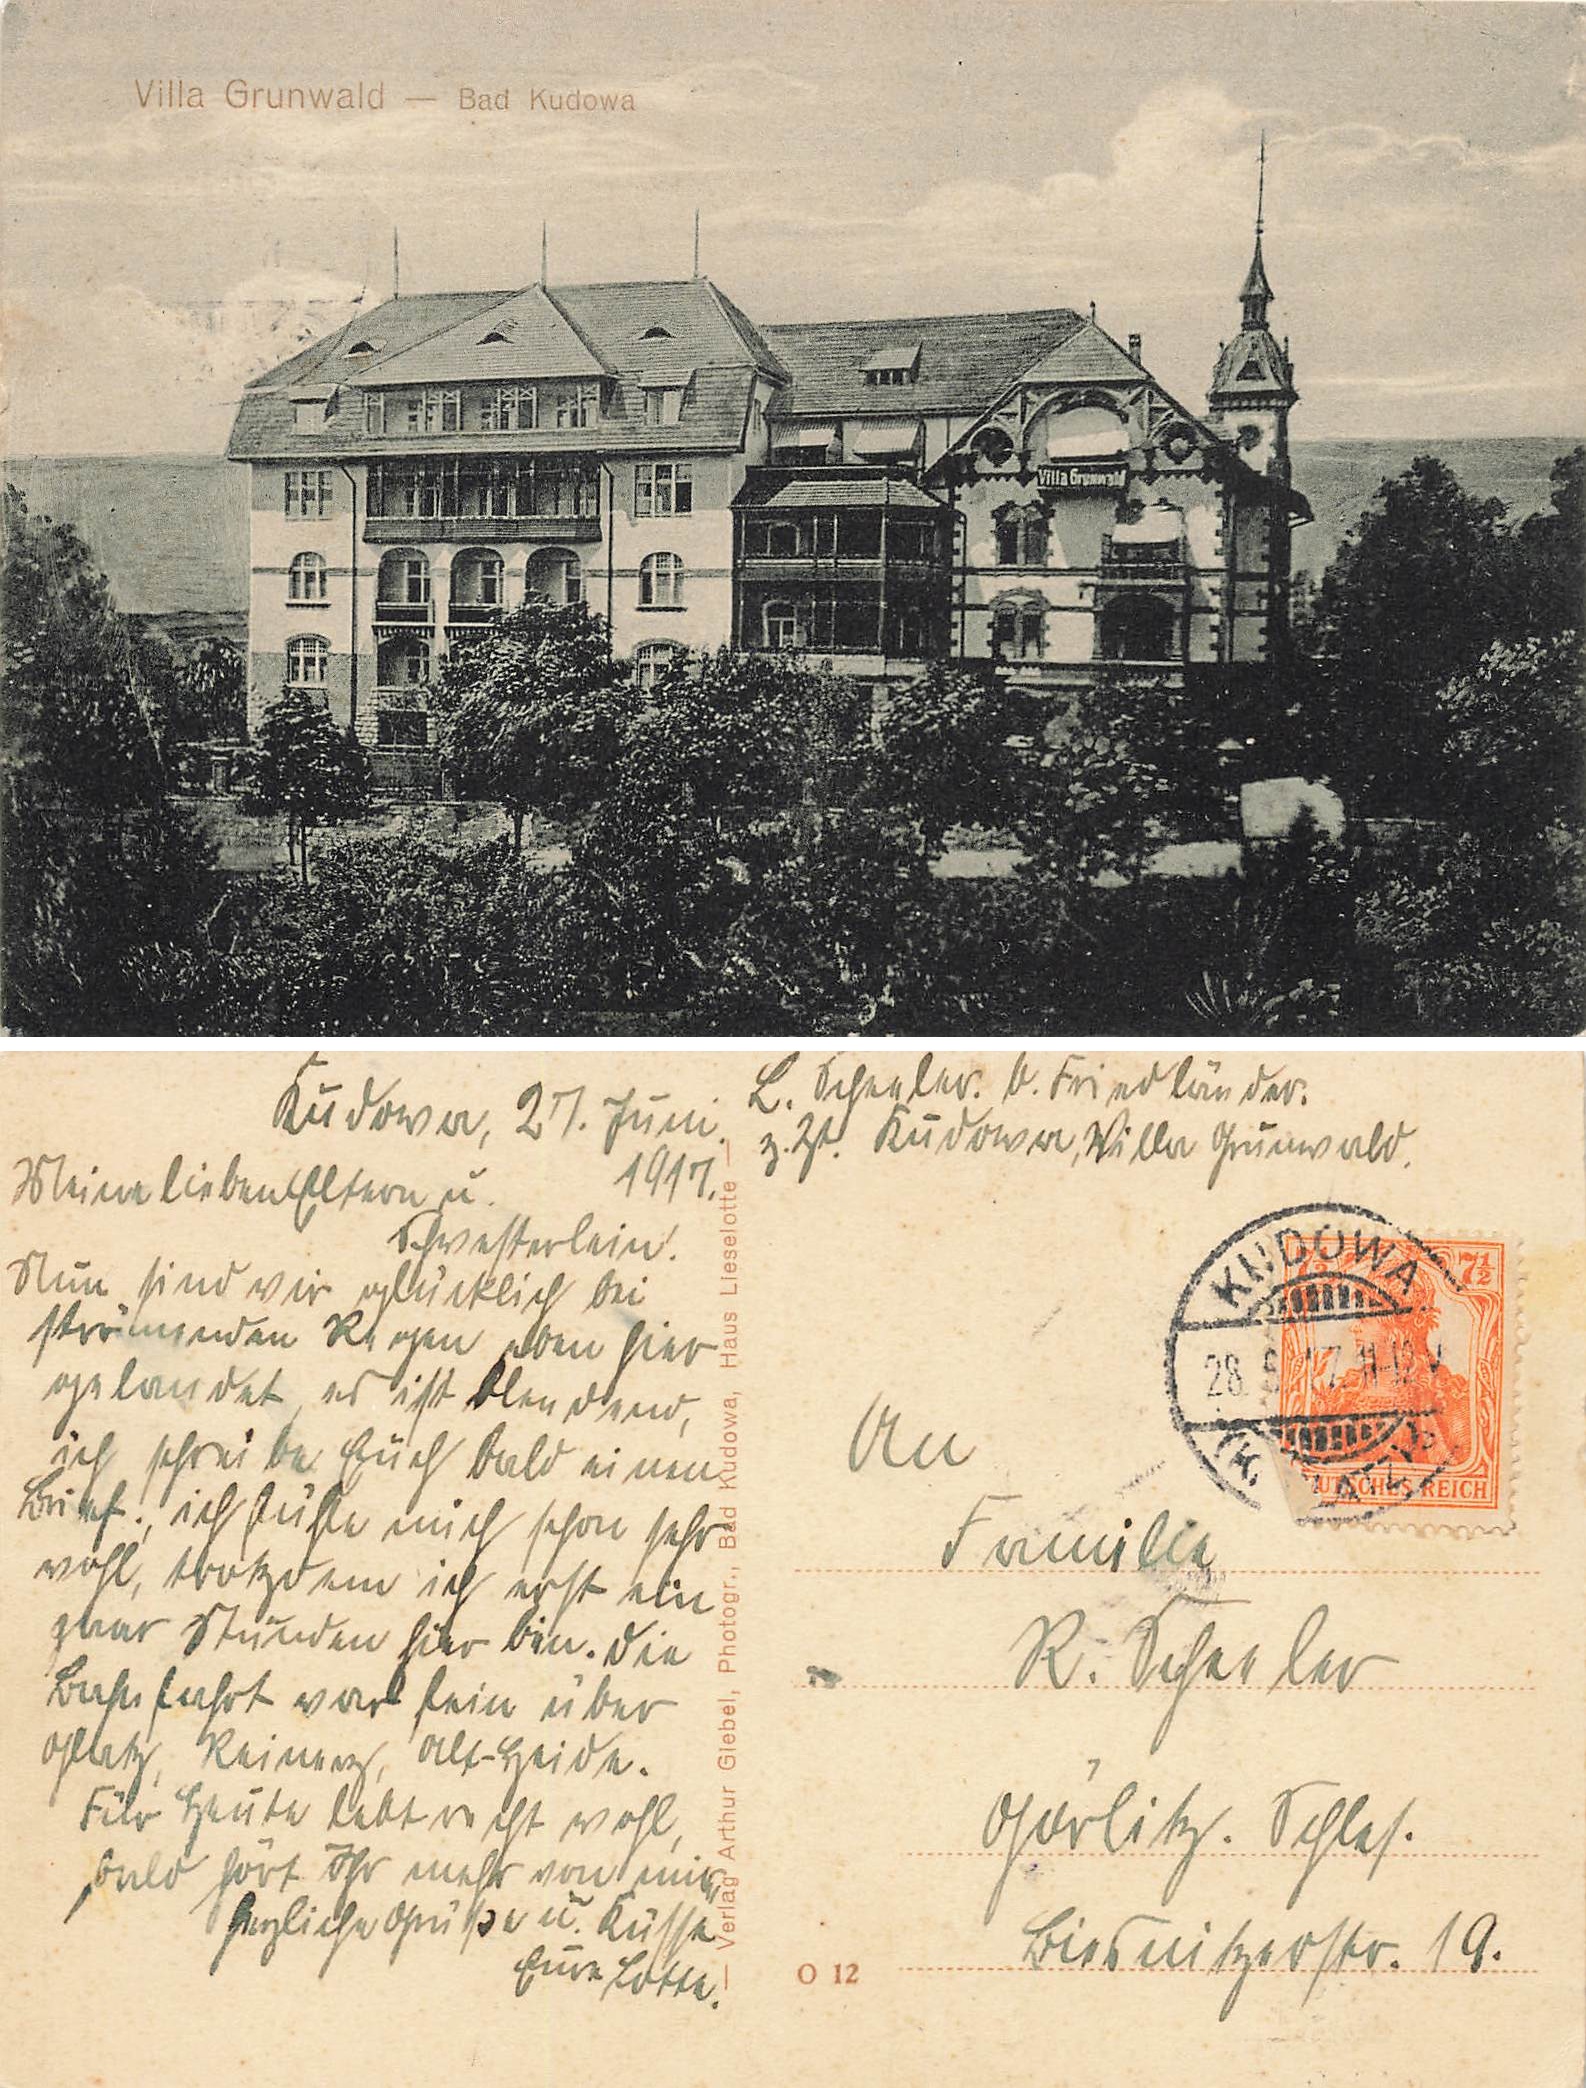 Villa Grunwald — Bad Kudowa
Villa Grunwald
Kudowa, 27. Juni.
1917.
Meine lieben Eltern u.
Schwesterlein.
Nun sind wir glücklich bei
strömenden Regen eben hier
gelandet, es ist blendend,
ich schreibe Euch bald einen
Brief., ich fühle mich schon sehr
wohl, trotzdem ich erst ein
paar Stunden hier bin. Die
Bahnfahrt war fein über
Glatz, Reinerz, Alt-Heide.
Für Heute lebt recht wohl,
bald hört Ihr mehr von mir,
herzliche Grüße u. Küsse
Eure Lotte.
— Verlag Arthur Giebel, Photogr., Bad Kudowa, Haus Lieselotte —
L. Scheeler. b. Friedländer.
z. Zt. Kudowa, Villa Grunwald.
KUDOWA
28. 6. 17. 11-12 V
7½ 7½
DEUTSCHES REICH
An
Familie
R. Scheeler
Görlitz. Schles.
Biesnitzerstr. 19.
O 12